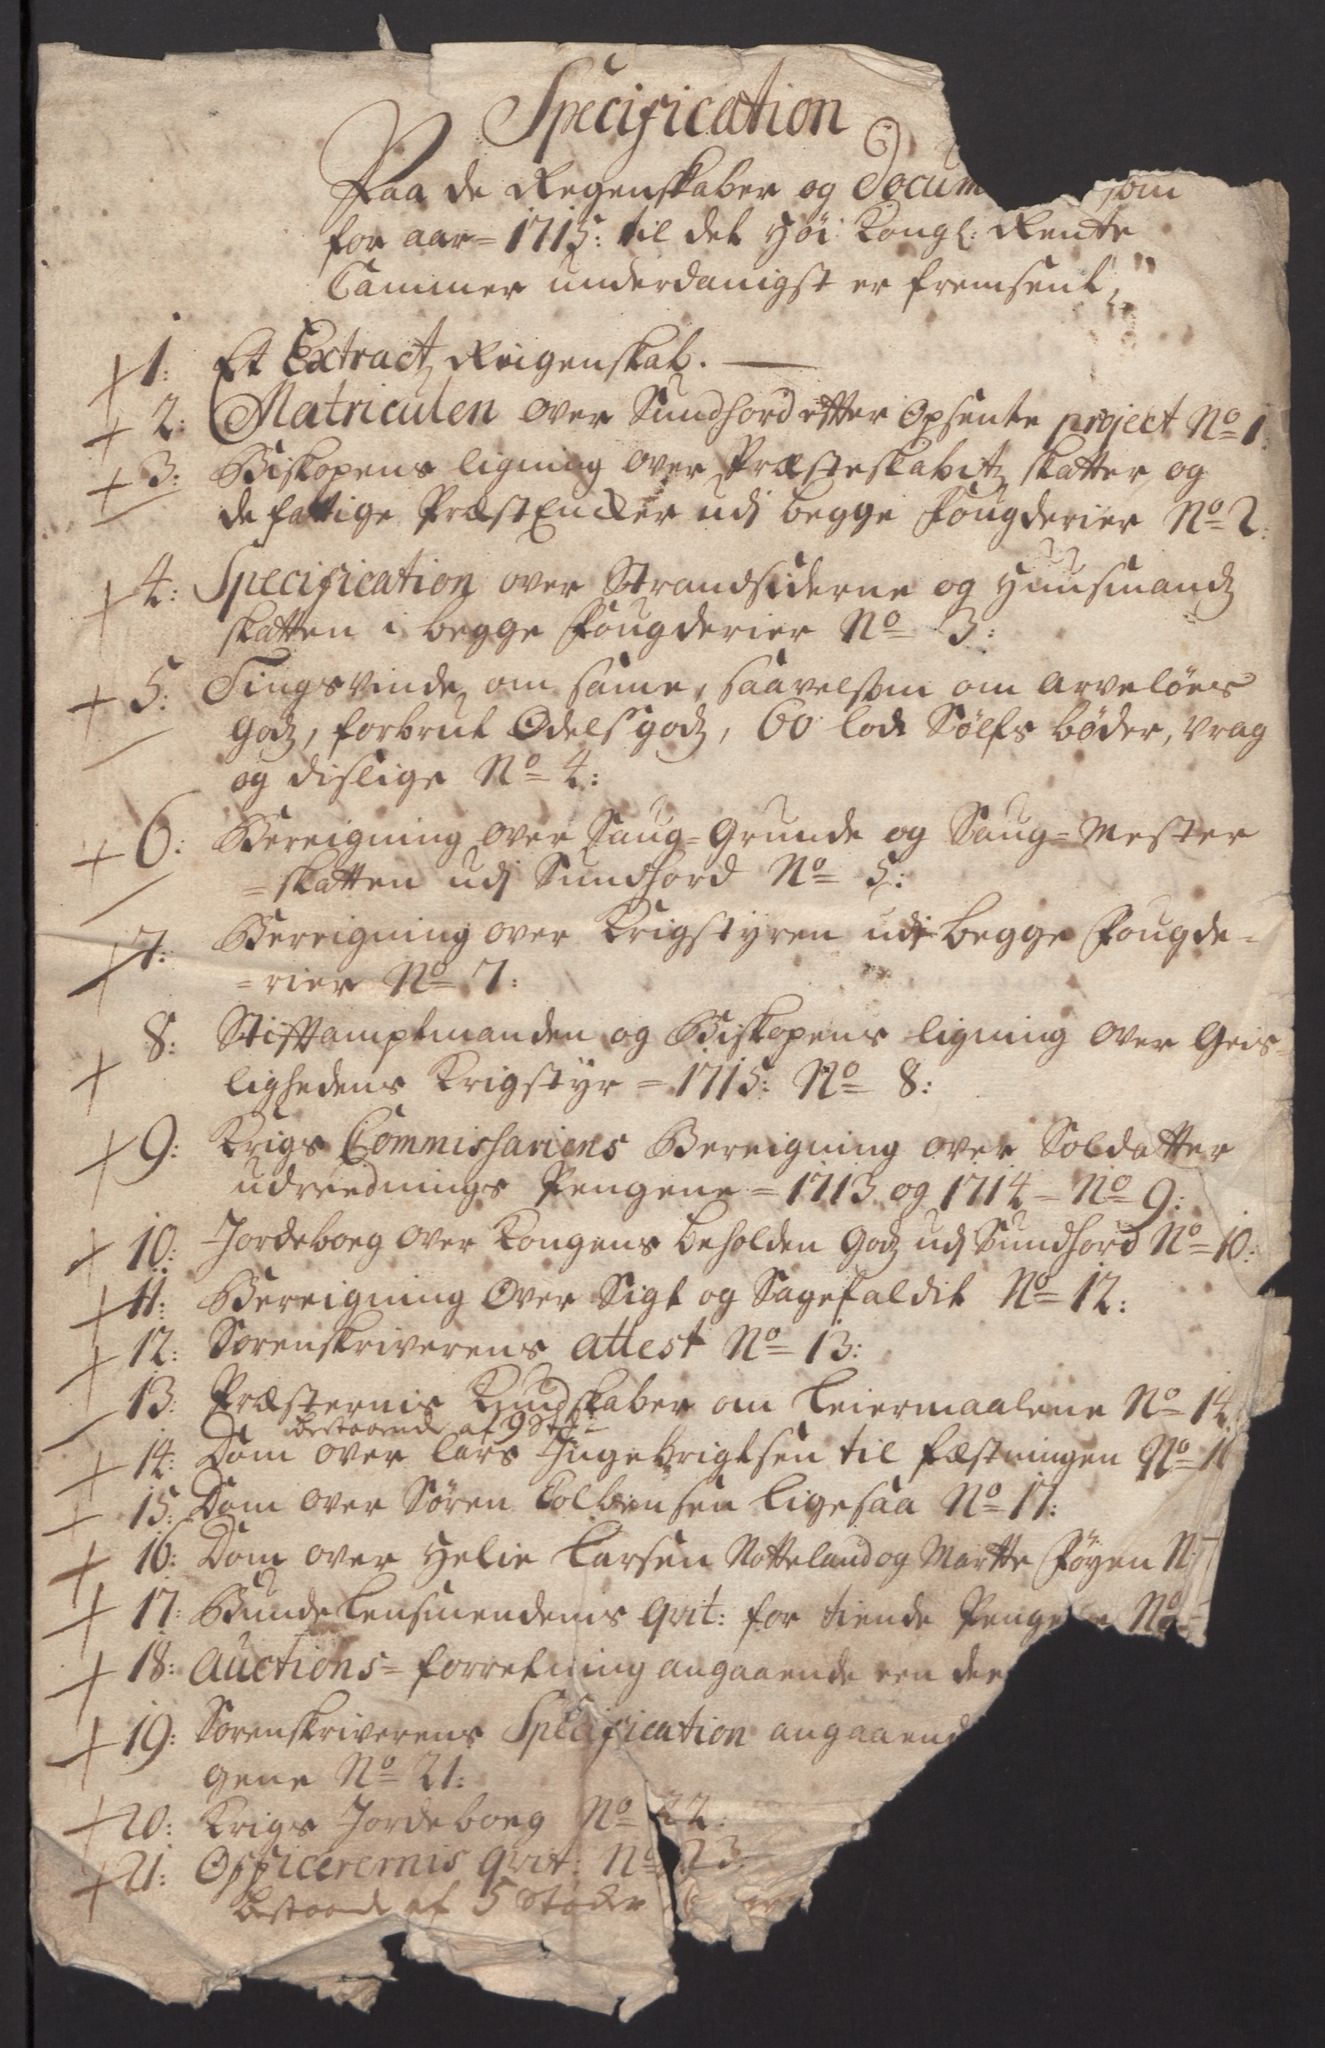 Specification
Paa de Regenskaber og Docum som
for aar = 1715: til det høi Kongl: Rente
Cammer underdanigst er fremsent,
+ 1: Et Extract Reigenskab.
+ 2: Matriculen over Sundhord efter opsente project No 1:
+ 3: Biskopens ligning over Præsteskabetz skatter og
de fattige Præst Encker udj begge Fougderier No 2:
+ 4: Specification over Strandsiderne og huusmandz
skatten i begge Fougderier No 3:
+ 5: Tingsvinde om same, saavelsom om arveløes
godz, forbrut Odelsgodz, 60 lod Sølfs bøder, vrag
og dislige No 4:
+ 6: Bereigning over Saug = Grunde og Saug = Mester
= skatten udj Sundhord No 5:
+ 7: Bereigning over Krigstyren udi begge Fougde =
= rier No 7:
+ 8: Stifftamptmanden og Biskopens ligning over Geis =
lighedens Krigstyr = 1715: No 8:
+ 9: Krigs Commissariens Bereigning over Soldatter
udreednings Pengene = 1713 og 1714 = No 9:
+ 10: Jordeboeg over Kongens beholden Godz udj Sundhord No 10:
+ 11: Bereigning Over Sigt og Sagefaldit No 12:
+ 12: Sorenskriverens attest No 13:
13: Præsternis Kundskaber om Leiermaalene No 14
bestaaende af 9 Stk:
+ 14: Dom over Lars Ingebrigtsen til fæstningen No 1
+ 15: Dom over Søren Colbensen ligesaa No 17:
+ 16: Dom over Helie Larsen Notteland og Martte Føyen N
+ 17: Bunde Lensmendenis qvit: for tiende Penge No
+ 18: Auctions = forretning angaaende een dee
+ 19: Sorenskriverens Specification angaaend
gene No 21:
+ 20: Krigs Jordeboeg No 22:
+ 21: Officerernis qvit: No 23
bestaaende af 5 Støcker